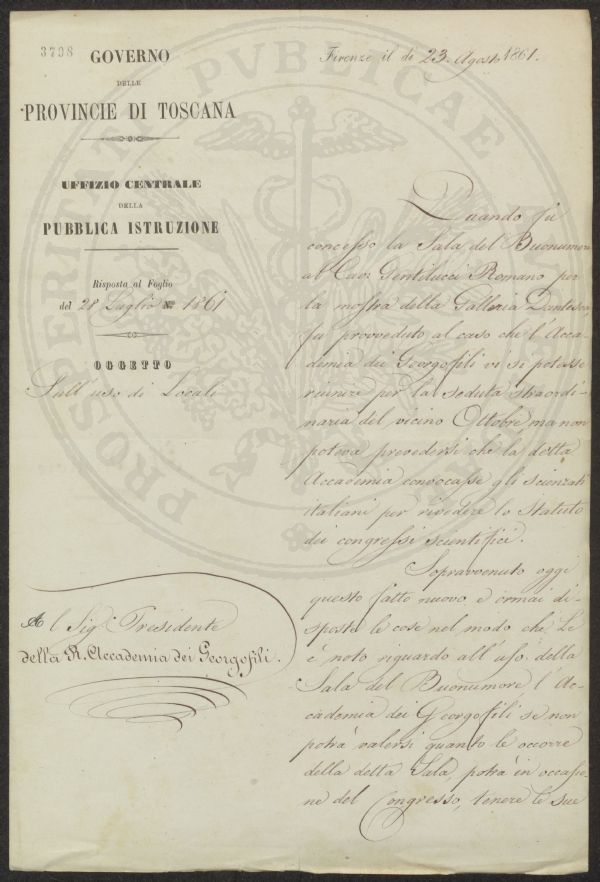 3798
GOVERNO
DELLE
PROVINCIE DI TOSCANA
UFFIZIO CENTRALE
DELLA
PUBBLICA ISTRUZIONE
Risposta al Foglio
del 28 Luglio N.° 1861
OGGETTO
Sull'uso di Locali
Al Sig. Presidente
della R. Accademia dei Georgofili.
Firenze il dì 23. Agosto 1861.
Quando fu
concesso la Sala del Buonumore
al Cav. Gentilucci Romano per
la mostra della Galleria Dantesca
fu provveduto al caso che l'Acca-
demia dei Georgofili vi si potesse
riunire per la seduta straordi-
naria del vicino Ottobre ma non
poteva prevedersi che la detta
Accademia convocasse gli scienziati
italiani per rivedere lo Statuto
dei congressi scientifici.
Sopravvenuto oggi
questo fatto nuovo, e ormai di-
sposte le cose nel modo che Le
è noto riguardo all'uso della
Sala del Buonumore, l'Ac-
cademia dei Georgofili se non
potrà valersi quanto le occorre
della detta Sala, potrà in occasio-
ne del Congresso, tenere le sue
PROSPERITATI PVBLICAE